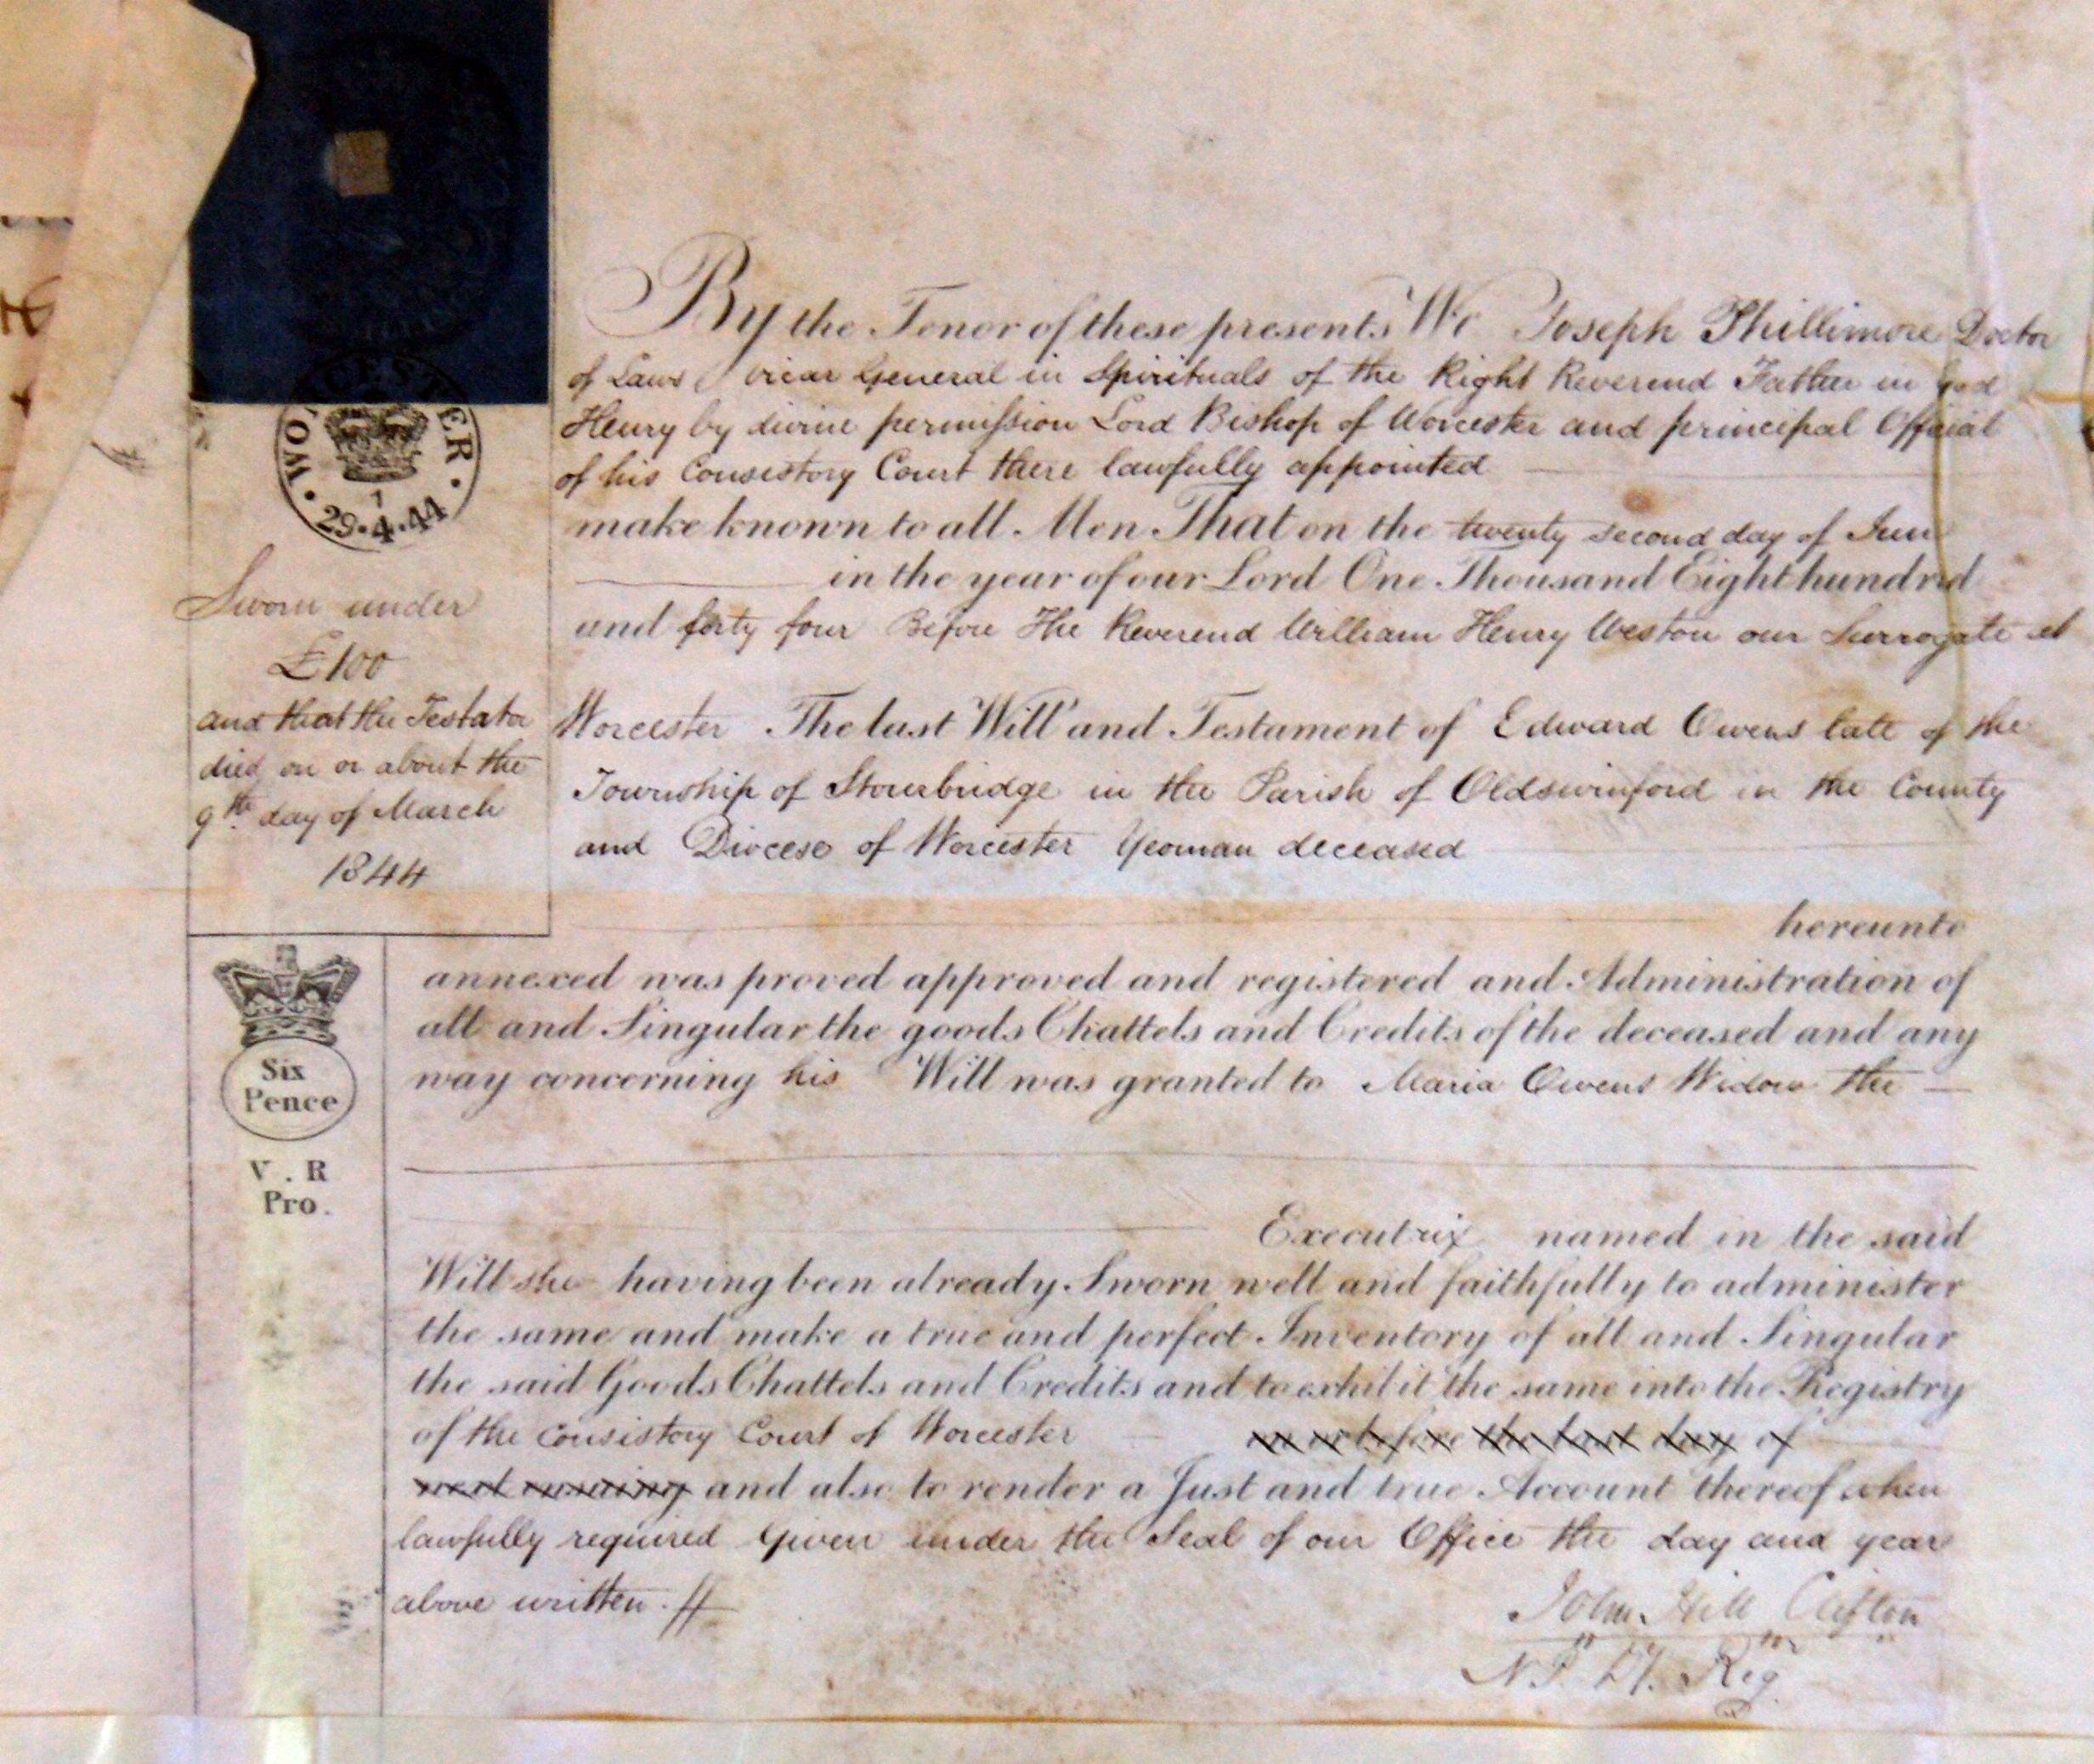 WORCESTER
1
29·4·44
Sworn under
£100
and that the Testator
died on or about the
9th. day of March
1844
Six
Pence
V. R
Pro.
By the Tenor of these presents We Joseph Phillimore Doctor
of Laws vicar General in Spirituals of the Right Reverend Father in God
Henry by divine permission Lord Bishop of Worcester and principal Official
of his Consistory Court there lawfully appointed
make known to all Men That on the twenty second day of June
in the year of our Lord One Thousand Eight hundred
and forty four Before The Reverend William Henry Weston our Surrogate at
Worcester The last Will and Testament of Edward Owens late of the
Township of Stourbridge in the Parish of Oldswinford in the County
and Diocese of Worcester Yeoman deceased
hereunto
annexed was proved approved and registered and Administration of
all and Singular the goods Chattels and Credits of the deceased and any
way concerning his Will was granted to Maria Owens Widow the
Executrix named in the said
Will she having been already Sworn well and faithfully to administer
the same and make a true and perfect Inventory of all and Singular
the said Goods Chattels and Credits and to exhibit the same into the Registry
of the Consistory Court of Worcester on or before the last day of
next ensuing and also to render a Just and true Account thereof when
lawfully required Given under the Seal of our Office the day and year
above written.
John Hill Clifton
N.P. Dy. Reg